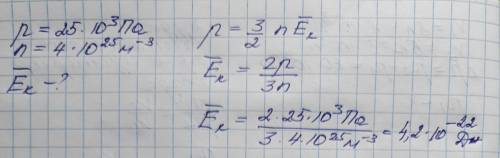 p = 25·10³ Па
n = 4·10²⁵ м⁻³
E̅ₖ - ?
p = 3/2 n E̅ₖ
E̅ₖ = 2p/3n
E̅ₖ = 2·25·10³ Па / 3·4·10²⁵ м⁻³ = 4,2·10⁻²² Дж